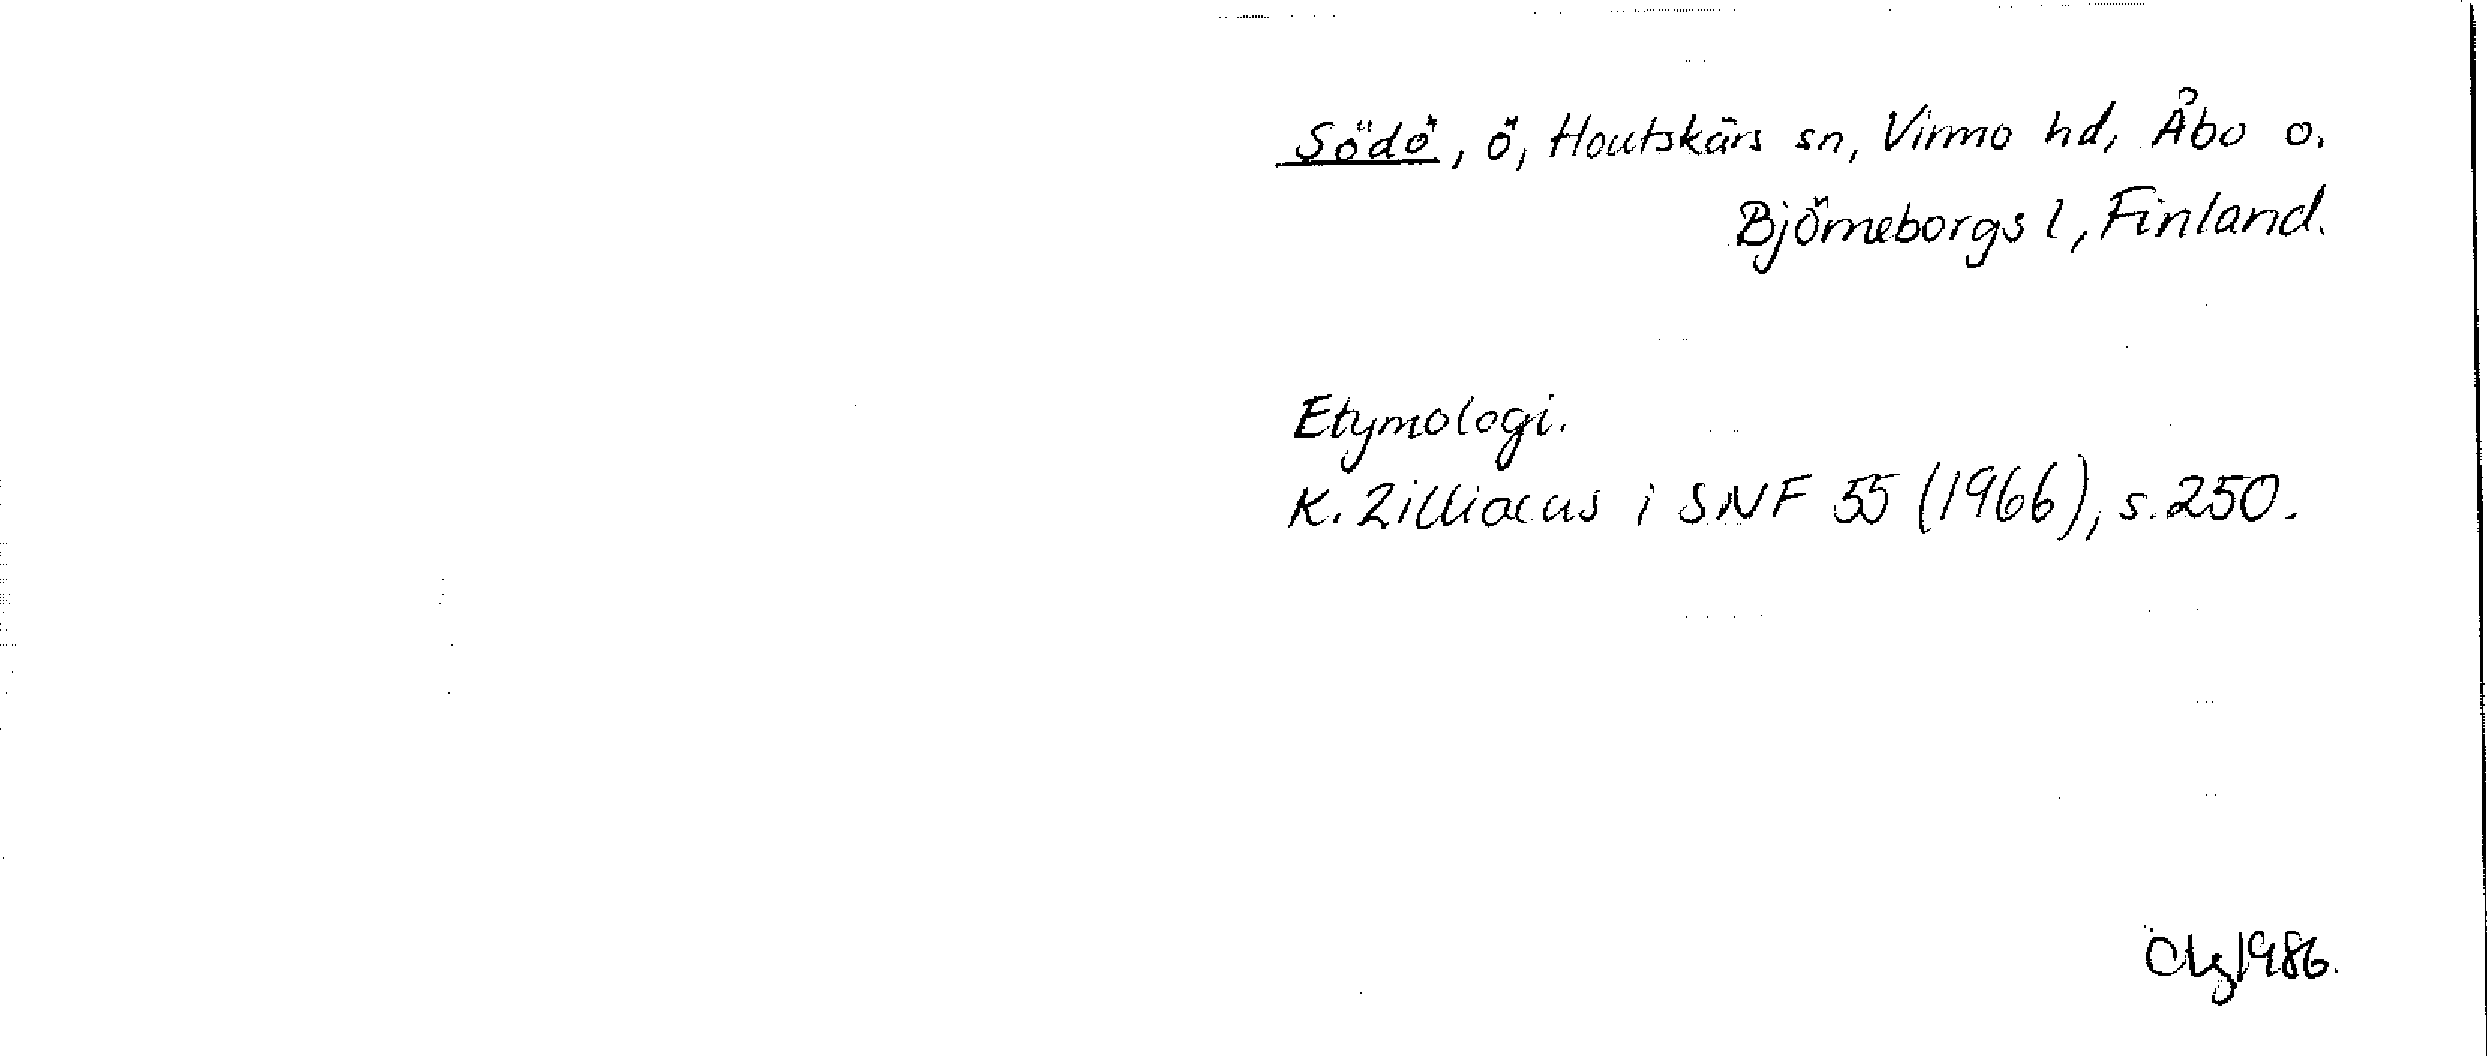 Södö, ö, Houtskärs sn, Virmo hd, Åbo o.
Björneborgs l, Finland.
Etymologi.
K. Zilliacus i SNF 55 (1966), s. 250.
1986.